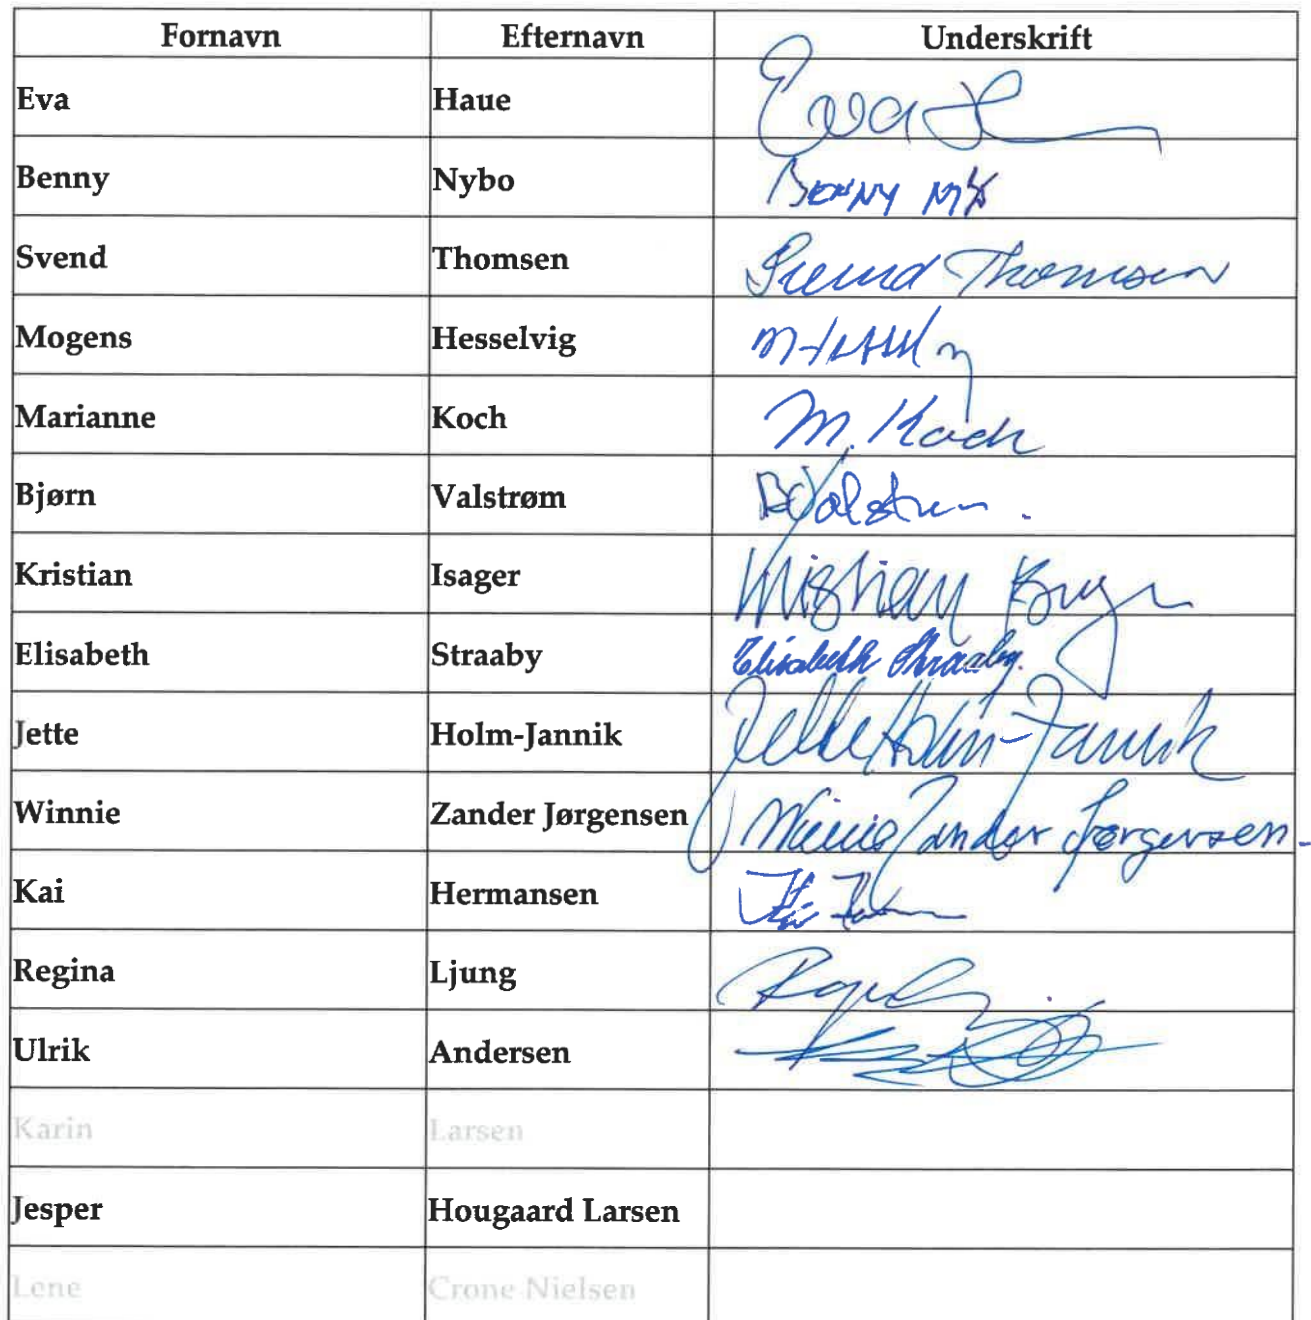 Fornavn Efternavn Underskrift
Eva Haue Eva
Benny Nybo BENNY
Svend Thomsen Svend Thomsen
Mogens Hesselvig
Marianne Koch M. Koch
Bjørn Valstrøm
Kristian Isager Kristian
Elisabeth Straaby Elisabeth Straaby.
Jette Holm-Jannik Jette Holm-Jannik
Winnie Zander Jørgensen Winnie Zander Jørgensen
Kai Hermansen
Regina Ljung
Ulrik Andersen
Karin Larsen
Jesper Hougaard Larsen
Lene Crone Nielsen